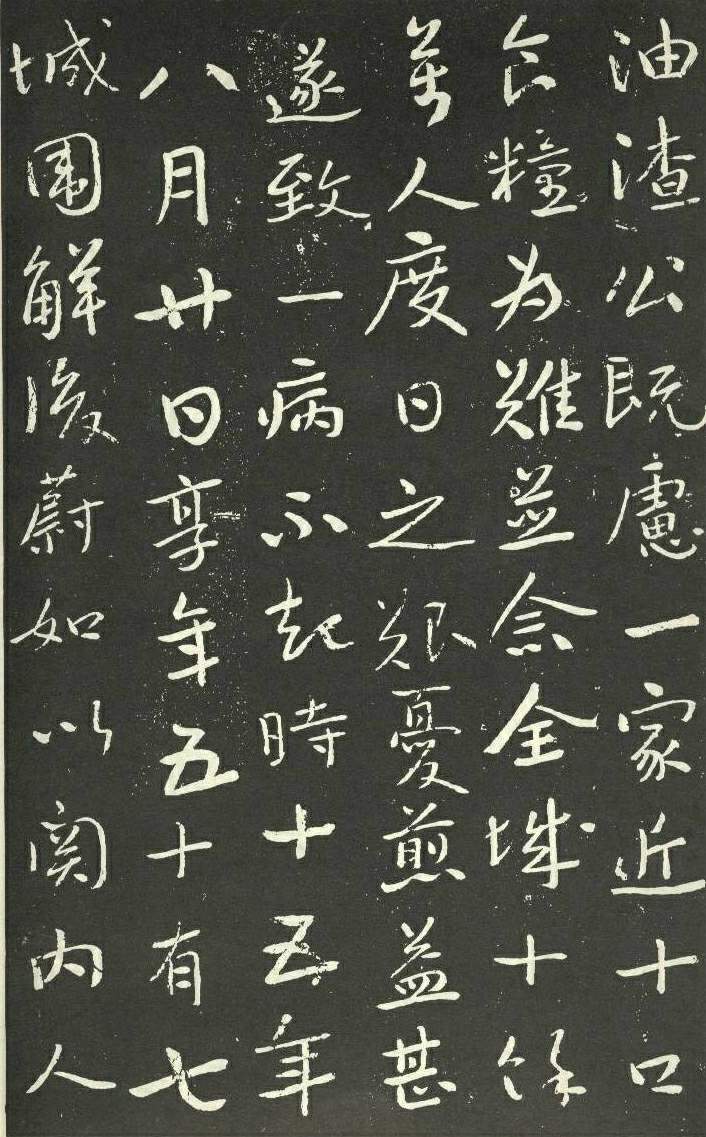 油渣公既慮一家近十口
食糧为難並念全城十餘
萬人度日之艱憂煎益甚
遂致一病不起時十五年
八月廿日享年五十有七
城围解後蔚如以関内人